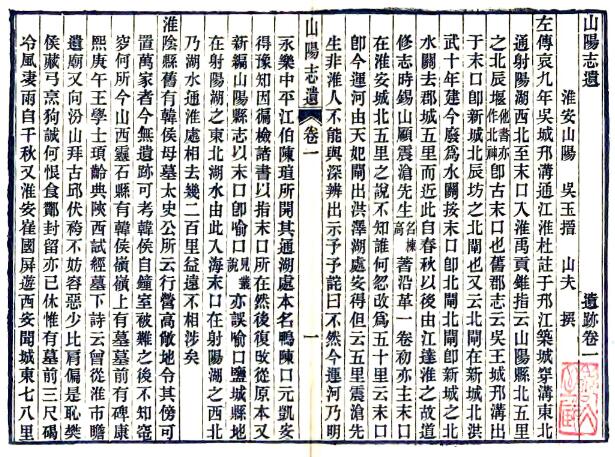 山陽志遺
遺跡卷一
淮安山陽　吳玉搢　山夫　撰
左傳哀九年吳城邗溝通江淮杜註于邗江築城穿溝東北
通射陽湖西北至末口入淮禹貢錐指云山陽縣北五里
之北辰堰他書亦作北神即古末口也舊郡志云吳王城邗溝出
于末口即新城北辰坊之北閘也又云北閘在新城北洪
武十年建今廢爲水關按末口即北閘北閘即新城之北
水關去郡城五里而近此自春秋以後由江達淮之故道
修志時錫山顧震滄先生名棟高著沿革一卷初亦主末口
在淮安城北五里之說不知誰何忽改爲五十里云末口
即今運河由天妃閘出洪澤湖處安得但云五里震滄先
生非淮人不能與深辨出示予予詫曰不然今運河乃明
山陽志遺　卷一　一
永樂中平江伯陳瑄所開其通湖處本名鴨陳口元凱安
得豫知因徧檢諸書以指末口所在然後復改從原本又
新編山陽縣志以末口即喻口見叢說亦誤喻口鹽城縣地
在射陽湖之東北湖水由此入海末口在射陽湖之西北
乃湖水通淮處相去幾二百里益遠不相涉矣
淮陰縣舊有韓侯母墓太史公所云行營高敞地令其傍可
置萬家者今無遺跡可考韓侯自鐘室被難之後不知窀
穸何所今山西靈石縣有韓侯嶺嶺上有墓墓前有碑康
熙庚午王學士頊齡典陝西試經墓下詩云曾從淮市瞻
遺廟又向汾山拜古邱伏袴不妨容惡少比肩偏是恥樊
侯藏弓烹狗誠何恨食酈封留亦已休惟有墓前三尺碣
冷風凄雨自千秋又淮安崔國屏遊西安聞城東七八里